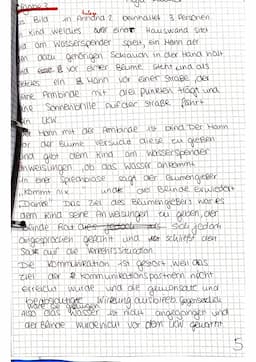 Bild in Annono 2 beinhaltet 3 Personen
Kind welches vor einer Hauswand sitzt
am Wasserspender spielt, ein Mann der
dazu gehörigen Schlauch in der Hand hält
vor einer Blume steht und als
ein Mann vor einer Straße der
eine Armbinde mit drei Punkten trägt und
eine Sonnenbrille Auf der Straße fährt
ein LKW
Mann mit der Armbinde ist blind Der Mann
der Blume versucht diese zu gießen
und gibt dem Kind am Wasserspender
Anweisungen, ob das Wasser ankommt
in einer Sprechblase sagt der Blumengießer
"Kommt nix und der Blinde erwiedert
"Danke!" Das Ziel des Blumengießers war es
dem Kind seine Anweisungen zu geben, der
Blinde hat sich jedoch
angesprochen gefühlt und schließt den
Satz auf die Verkehrssituation.
Die Kommunikation ist gestört, weil das
Ziel der Kommunikationspartnern nicht
erreicht wurde und die gewünschte und
beabsichtigte Wirkung ausblieb.
Also das Wasser ist nicht angegangen und
der Blinde wurde nicht vor dem LKW gewarnt.
5